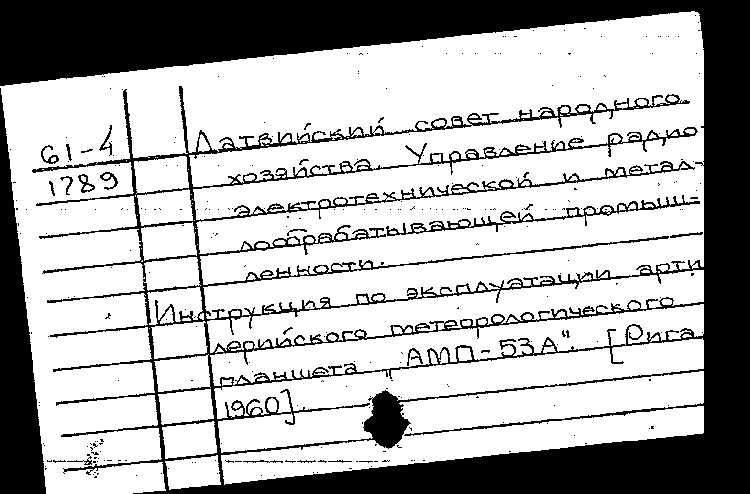 61-4
1789
Латвийский совет народного
хозяйства. Управление радио-
электротехнической и метал-
лообрабатывающей промыш-
ленности.
Инструкция по эксплуатации арти
лерийского метеорологического
планшета „АМП-53А". [Рига
1960].